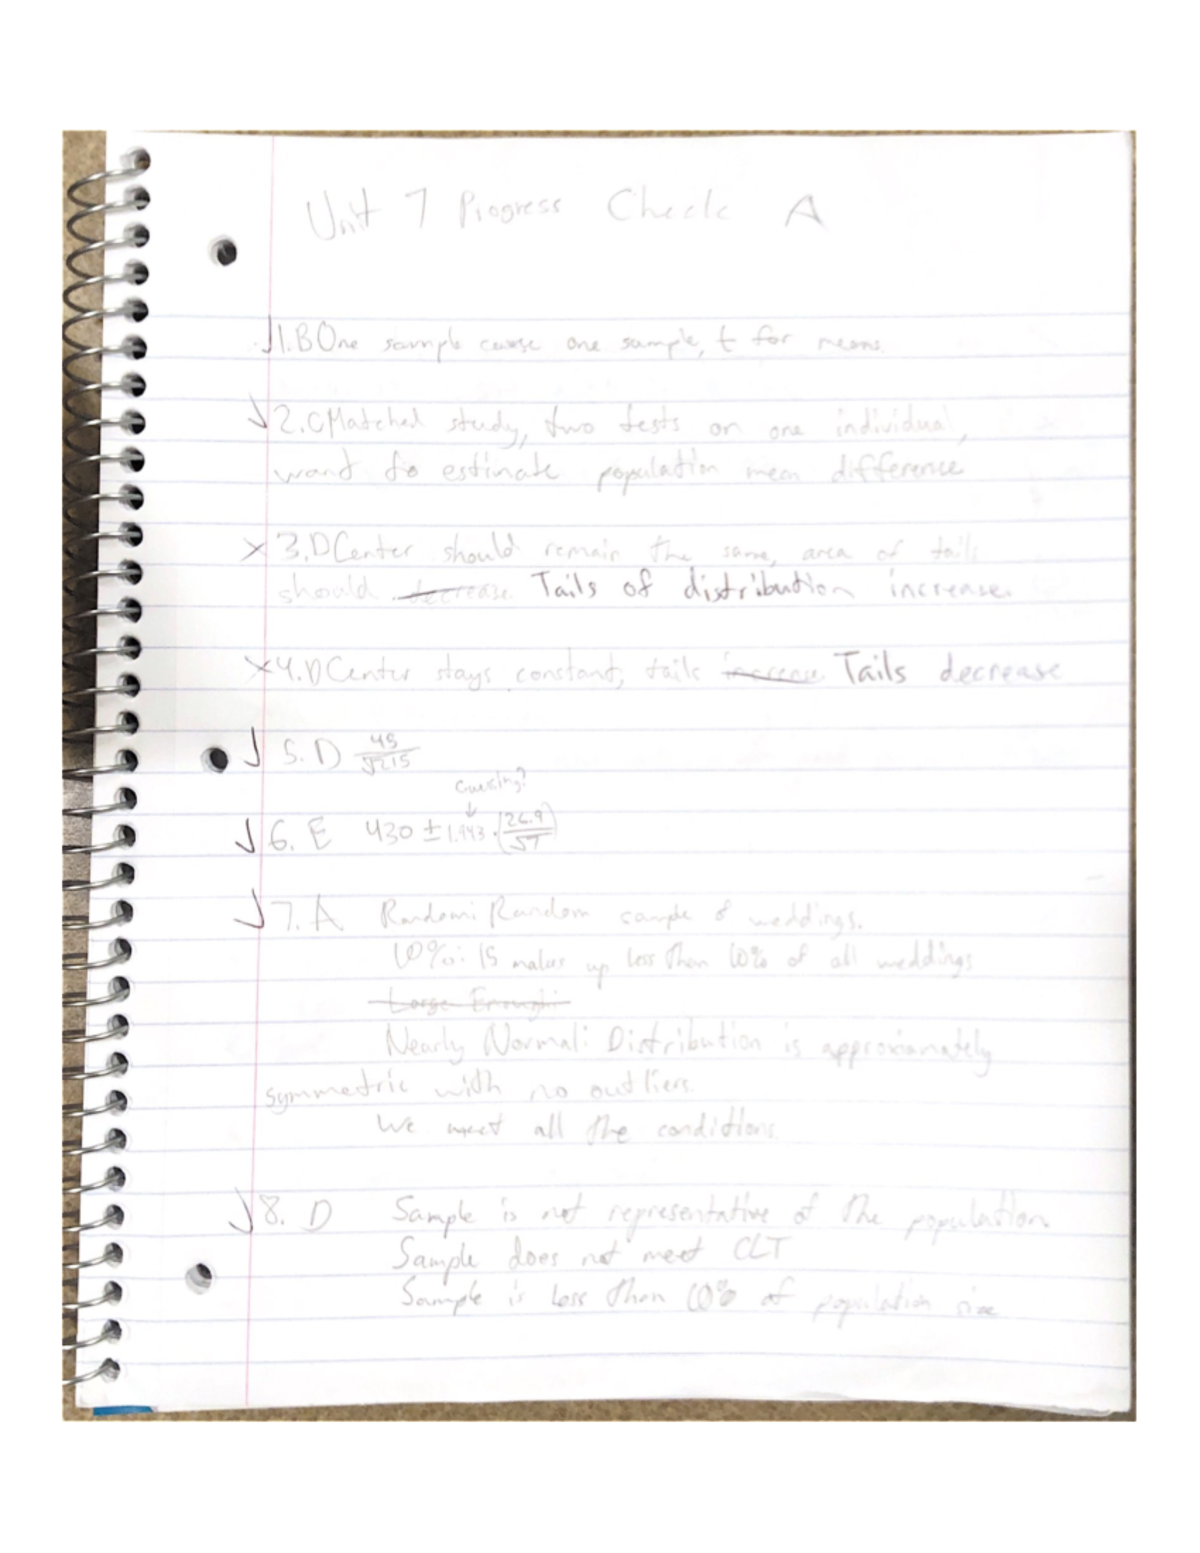 Unit 7 Progress Check A
✓1.B One sample cause one sample, t for means.
✓2.C Matched study, two tests on one individual,
want to estimate population mean difference
×3.D Center should remain the same, area of tails
should decrease. Tails of distribution increase.
×4.D Center stays constant, tails increase Tails decrease
✓5. D 45/√215
✓6. E 430 ± 1.943 · (26.9/√7)
✓7. A Random: Random sample of weddings.
10%: 15 makes up less than 10% of all weddings
Large Enough:
Nearly Normal: Distribution is approxiamately
symmetric with no outliers.
We meet all the conditions.
✓8. D Sample is not representative of the population.
Sample does not meet CLT
Sample is less than 10% of population size